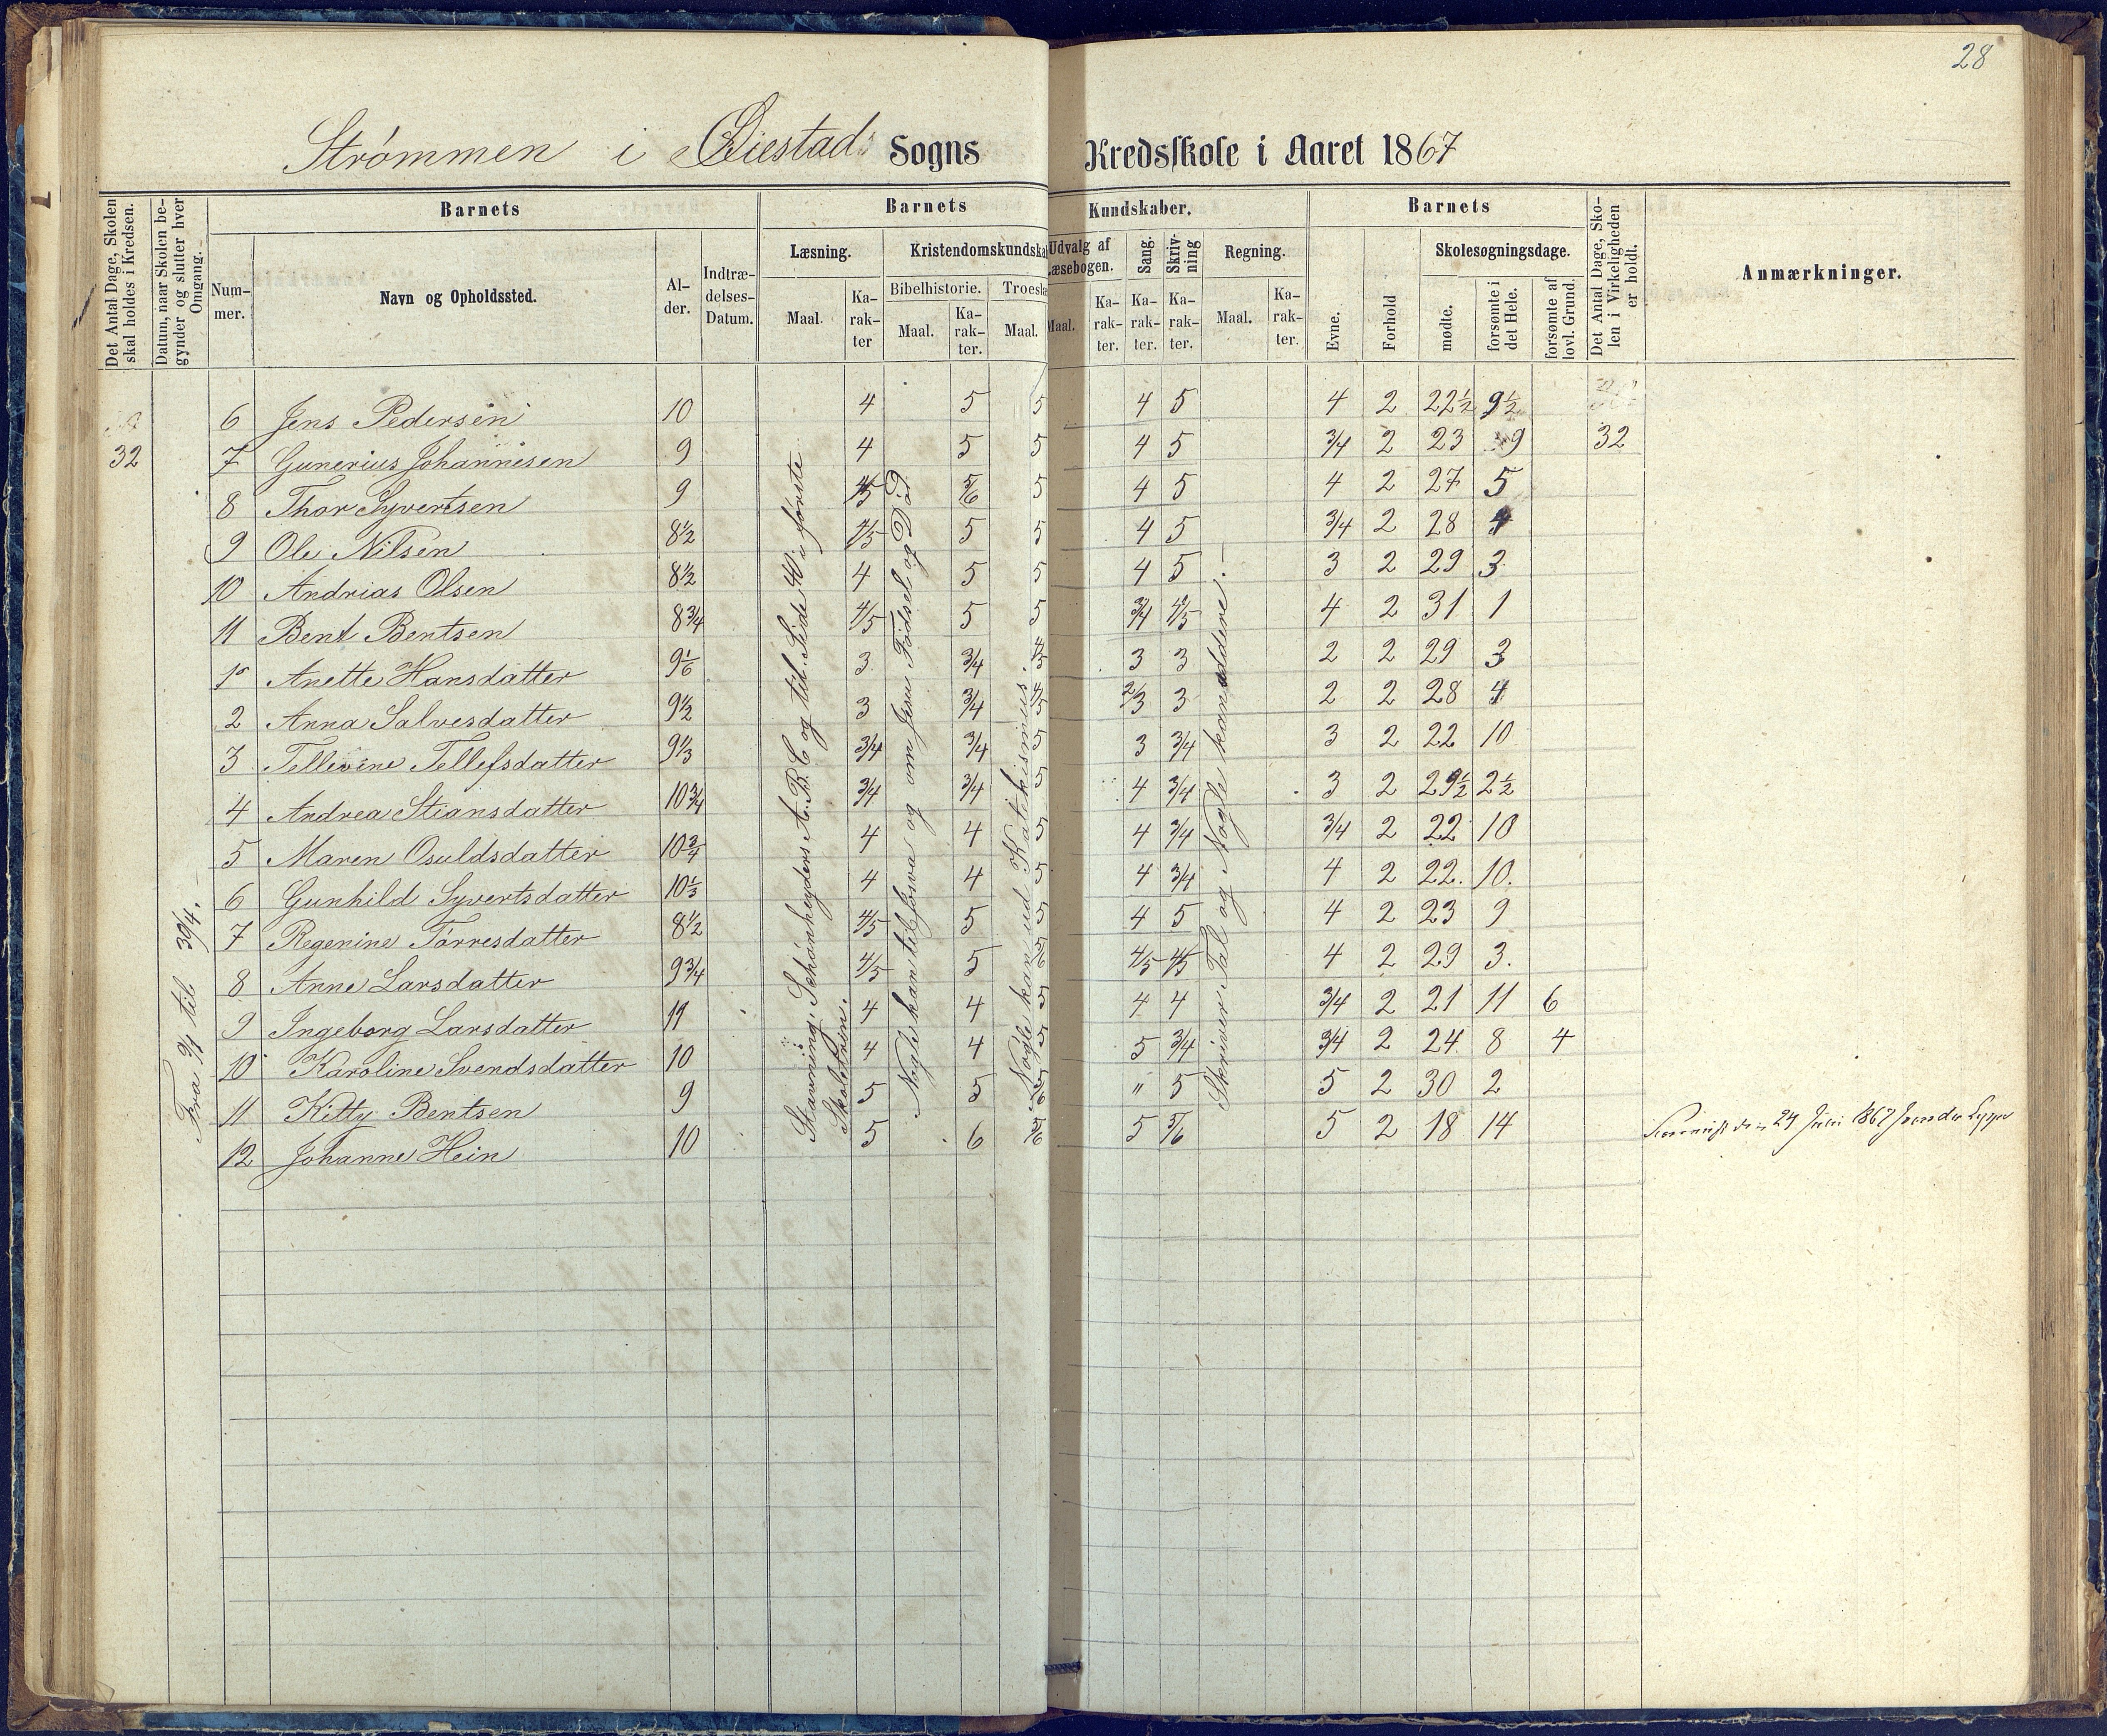 28
Strømmen i Øiestads Sogns Kredsskole i Aaret 1867
Det Antal Dage, Skolen skal holdes i Kredsen.
Datum, naar Skolen begynder og slutter hver Omgang.
Barnets
Num-
mer.
Navn og Opholdssted.
Al-
der.
Indtræ-
delses-
Datum.
Barnets Kundskaber.
Læsning.
Maal.
Ka-
rak-
ter
Kristendomskundska
Bibelhistorie.
Maal.
Ka-
rak-
ter.
Troesl
Maal.
Udvalg af
Læsebogen.
Maal.
Ka-
rak-
ter.
Sang.
Ka-
rak-
ter.
Skriv-
ning
Ka-
rak-
ter.
Regning.
Maal.
Ka-
rak-
ter.
Barnets
Evne.
Forhold
Skolesøgningsdage.
mødte.
forsømte i
det Hele.
forsømte af
lovl. Grund.
Det Antal Dage, Sko-
len i Virkeligheden
er holdt.
Anmærkninger.
6 Jens Pedersen 10 4 5 5 4 5 4 2 22½ 9½
32 7 Gunerius Johannesen 9 4 5 5 4 5 3/4 2 23 9 32
8 Thor Syvertsen 9 4/5 5/6 5 4 5 4 2 27 5
9 Ole Nilsen 8½ 4/5 5 5 4 5 3/4 2 28 4
10 Andrias Olsen 8½ 4 5 5 4 5 3 2 29 3
11 Bent Bentsen 8¾ 4/5 5 5 3/4 4/5 4 2 31 1
1 Anette Hansdatter 9 1/6 3 3/4 4/5 3 3 2 2 29 3
2 Anna Salvesdatter 9½ 3 3/4 4/5 2/3 3 2 2 28 4
3 Tellevine Tellefsdatter 9⅓ 3/4 3/4 5 3 3/4 3 2 22 10
4 Andrea Stiansdatter 10¾ 3/4 3/4 5 4 3/4 3 2 29½ 2½
5 Maren Osuldsdatter 10¾ 4 4 5 4 3/4 3/4 2 22 10
6 Gunhild Syvertsdatter 10⅓ 4 4 5 4 3/4 4 2 22. 10.
7 Regenine Tørresdatter 8½ 4/5 5 5 4 5 4 2 23 9
8 Anne Larsdatter 9¾ 4/5 5 5/6 4/5 4/5 4 2 29 3.
9 Ingeborg Larsdatter 11 4 4 5 4 4 3/4 2 21 11 6
10 Karoline Svendsdatter 10 4 4 5 5 3/4 3/4 2 24 8 4
11 Kitty Bentsen 9 5 5 5/6 " 5 5 2 30 2
12 Johanne Hein 10 5 6 5/6 5 5/6 5 2 18 14
Fra til 30/4.
Stavning: Schønheyders A.B.C og til Side 40 i første
Skoletrin.
Nogle kan til Esva og om Jesu Fødsel og Død
Nogle kan ud Katekismus.
Skriver Tal og Nogle kan addere.
24 Juni 1867